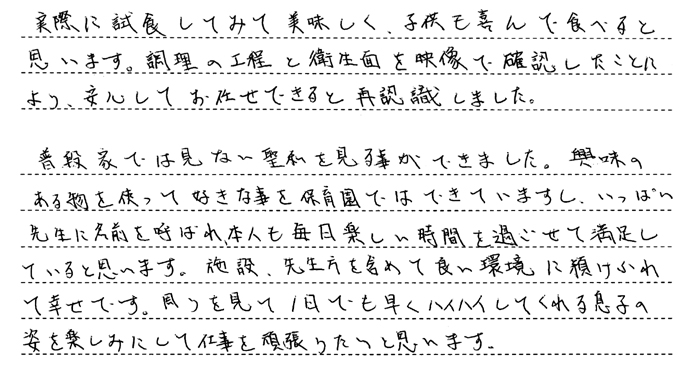 実際に試食してみて美味しく、子供も喜んで食べると
思います。調理の工程と衛生面を映像で確認したことに
より、安心してお任せできると再認識しました。
普段家では見ない聖和を見る事ができました。興味の
ある物を使って好きな事を保育園ではできていますし、いっぱい
先生に名前を呼ばれ、本人も毎日楽しい時間を過ごせて満足し
ていると思います。施設、先生方を含めて良い環境に預けられ
て幸せです。周りを見て1日でも早くハイハイしてくれる息子の
姿を楽しみにして仕事を頑張りたいと思います。